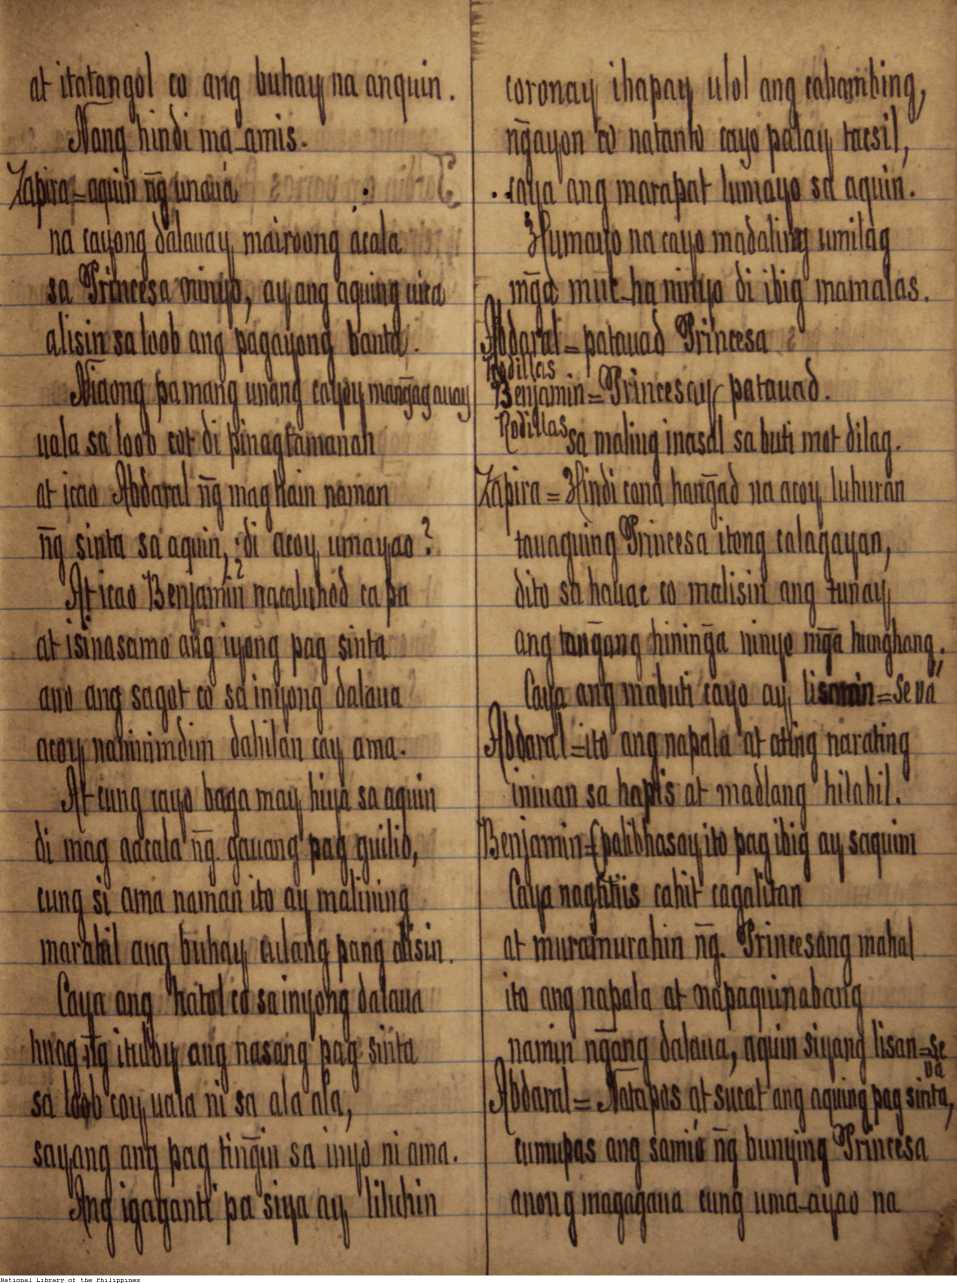 at itatangol co ang buhay na anquin.
Nang hindi ma-amis.
Zapira = aquin n̄g unaua
na cayong dalauay mairoong acala
sa Princesa ninyo, ay ang aquing uica
alisin sa loob ang pagayong banta.
Niaong pamang unang cayoy man̄gagauay
uala sa loob cot di pinagtamanan
at icao Abdaral n̄g mag hain naman
n̄g sinta sa aquin, di acoy umayao?
At icao Benjamin nacaluhod ca pa
at isinasamo ang iyong pag sinta
ano ang sagot co sa inyong dalaua
acoy naninimdim dahilan cay ama.
At cung cayo baga may hiya sa aquin
di mag aacala n̄g. gauang pag quilid,
cung si ama naman ito ay malining
marahil ang buhay culang pang alisin.
Caya ang hatol co sa inyong dalaua
huag n̄g ituloy ang nasang pag sinta
sa loob coy uala ni sa ala ala,
sayang ang pag tin̄gin sa inyo ni ama.
Ang igaganti pa siya ay liluhin
coronay ihapay ulol ang cahambing,
n̄gayon co natanto cayo palay tacsil,
caya ang marapat lumayo sa aquin.
Humayo na cayo madaling umilag
man̄ga muc-ha ninyo di ibig mamalas.
Abdaral = patauad Princesa
Rodillas
Benjamin = Princesay patauad.
Rodillas
sa maling inasal sa buti mot dilag.
Zapira = Hindi cona han̄gad na acoy luhuran
tauaguing Princesa itong calagayan,
dito sa haliac co malisin ang tunay
ang tan̄gang hinin̄ga ninyo m̄ga hunghang.
Caya ang mabuti cayo ay lisanin = se va
Abdaral = ito ang napala at ating narating
ininan sa hapis at madlang hilahil.
Benjamin = palibhasay ito pag ibig ay saquim
Caya nagtitiis cahit cagalitan
at muramurahin n̄g. Princesang mahal
ito ang napala at napaquinabang
namin n̄gang dalaua, aquin siyang lisan = se va
Abdaral = Natapas at sucat ang aquing pag sinta,
cumupas ang samio n̄g bunying Princesa
anong magagaua cung uma-ayao na
National Library of the Philippines